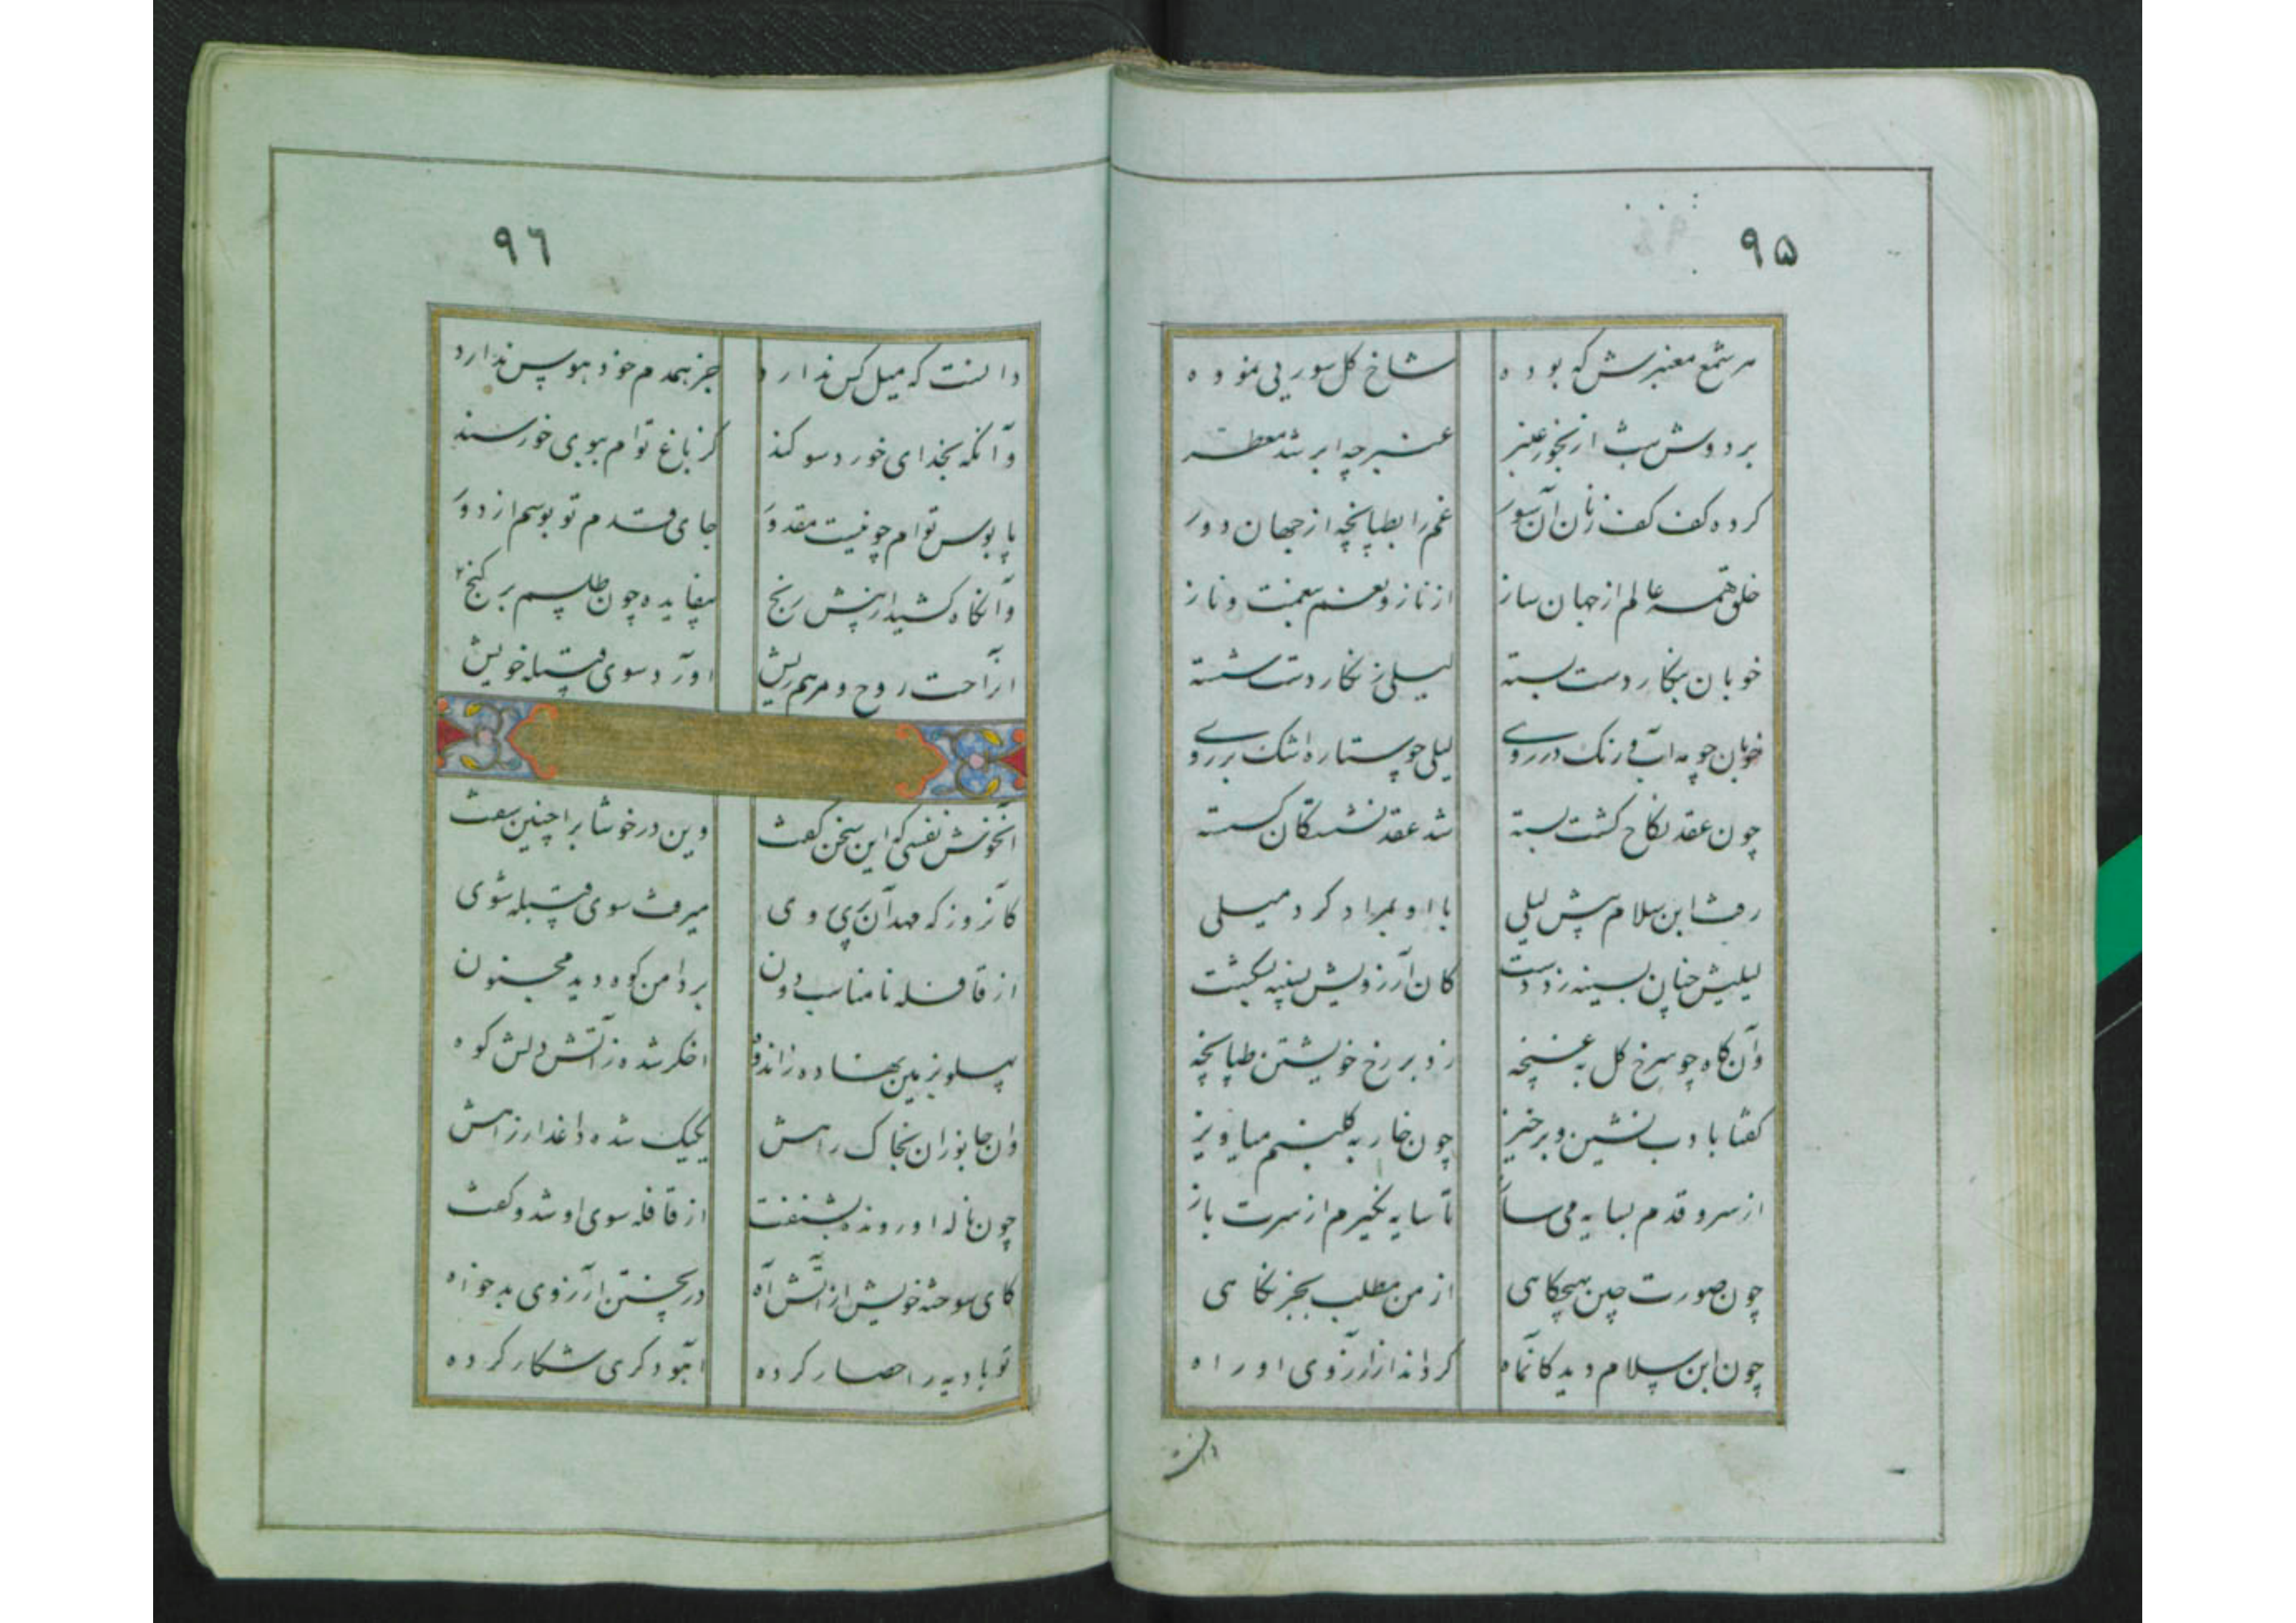 ۹۵
هر شمع معنبرش که بوده شاخ گل سوریی نموده
بر دوش شب از بخور عنبر عنبرچه ابر شد معطر
کرده کف کف زنان آن سور غم را بطپانچه از جهان دور
خلق همه عالم از جهان ساز از ناز و نعم بنعمت و ناز
خوبان بنکار دست بسته لیلی ز نکار دست شسته
خوبان چو مه آب و رنک در روی لیلی چو ستاره اشک بر روی
چون عقد نکاح کشت بسته شد عقد نشستکان کسسته
رفت ابن سلام پیش لیلی با او بمراد کرد میلی
لیلیش چنان بسینه زد دست کان آرزویش بسینه بشکست
وآن کاه چو سرخ کل به غنچه زد بر رخ خویشتن طپانچه
کفتا بادب نشین و برخیز چون خار به کلبنم میاویز
از سرو قدم بسایه می ساز تا سایه نکیرم از سرت باز
چون صورت چین بهیچکاهی از من مطلب بجز نکاهی
چون ابن سلام دید کانماه کرداند از آرزوی او راه
دانست
۹۶
دانست که میل کس ندارد جز همدم خود هوس ندارد
وآنکه بخدای خورد سوکند کز باغ توام ببوی خورسند
پابوس توام چو نیست مقدور جای قدم تو بوسم از دور
وآنکاه کشید از پیش رنج بیفایده چون طلسم بر کنج
از راحت روح و مرهم ریش آورد سوی قبیله خویش
آنخوش نفسی که این سخن کفت وین در خوشاب را چنین سفت
کانروز که مهد آن پری روی میرفت سوی قبیله شوی
از قافله نامناسب دون بر دامن کوه دید مجنون
پهلو بزمین نهاده ز اندوه اخکر شده ز آتش دلش کوه
وان جانوران بخاک راهش یکیک شده داغدار ز آهش
چون ناله او رونده بشنفت از قافله سوی او شد و کفت
کای سوخته خویش از آتش آه در پختن آرزوی بدخواه
تو بادیه را حصار کرده آهو دکری شکار کرده